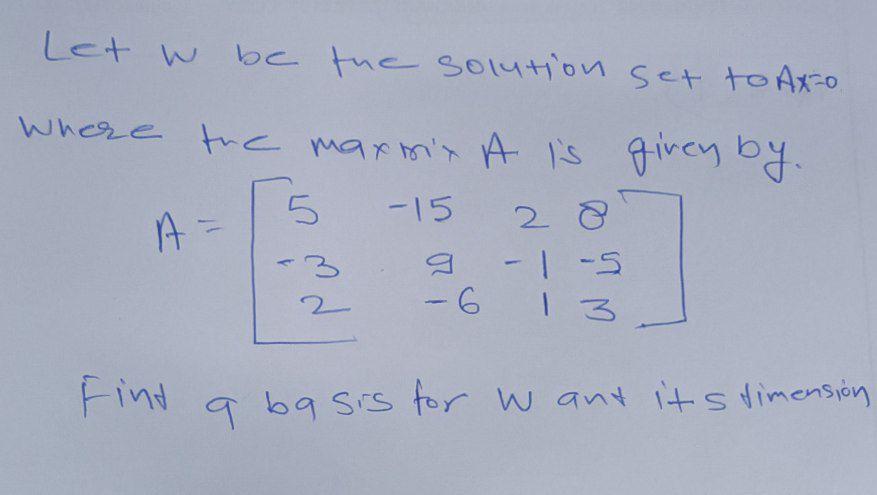 Let W be the solution set to Ax=0
Where the maxmrix A is given by.
A = [ 5 -15 2 8
-3 9 -1 -5
2 -6 1 3 ]
Find a basis for W and its dimension